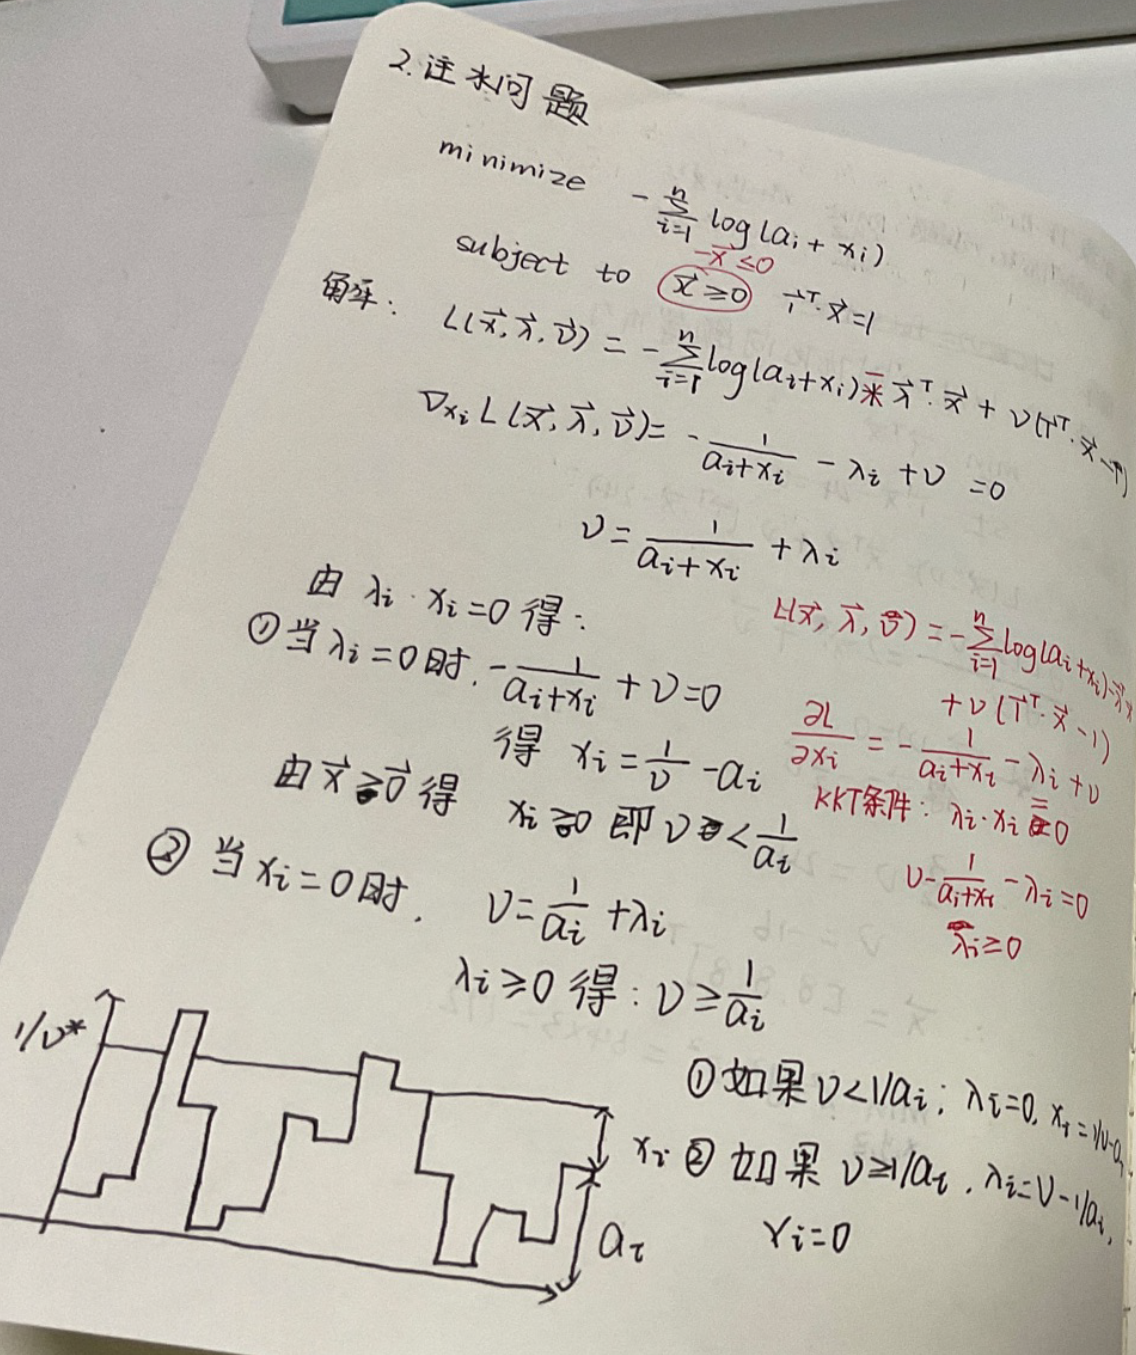 2.注水问题
minimize -∑_{i=1}^{n} log(aᵢ + xᵢ)
-x⃗ ≤ 0
subject to x⃗ ≥ 0 1⃗ᵀ·x⃗ = 1
解: L(x⃗, λ⃗, ν⃗) = -∑_{i=1}^{n} log(aᵢ+xᵢ) - λ⃗ᵀ·x⃗ + ν(1⃗ᵀ·x⃗ - 1)
∇xᵢ L(x⃗, λ⃗, ν⃗) = -1/(aᵢ+xᵢ) - λᵢ + ν = 0
ν = 1/(aᵢ+xᵢ) + λᵢ
由 λᵢ·xᵢ=0 得:
①当 λᵢ=0时, -1/(aᵢ+xᵢ) + ν = 0
得 xᵢ = 1/ν - aᵢ
由 x⃗ ≥ 0⃗ 得 xᵢ ≥ 0 即 ν < 1/aᵢ
② 当 xᵢ=0时, ν = 1/aᵢ + λᵢ
λᵢ ≥ 0 得: ν ≥ 1/aᵢ
L(x⃗, λ⃗, ν⃗) = -∑_{i=1}^{n} log(aᵢ+xᵢ) - λ⃗ᵀx⃗
+ν(1⃗ᵀ·x⃗ - 1)
∂L/∂xᵢ = -1/(aᵢ+xᵢ) - λᵢ + ν
KKT条件: λᵢ·xᵢ = 0
ν - 1/(aᵢ+xᵢ) - λᵢ = 0
λᵢ ≥ 0
①如果 ν<1/aᵢ; λᵢ=0, xᵢ=1/ν-aᵢ
② 如果 ν≥1/aᵢ, λᵢ=ν-1/aᵢ,
xᵢ=0
1/ν*
xᵢ
aᵢ